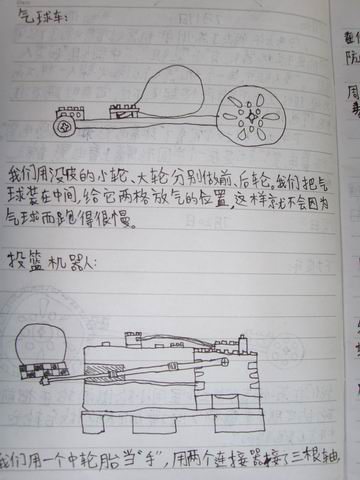 气球车:
我们用没皮的小轮、大轮分别做前、后轮。我们把气
球装在中间,给它两格放气的位置,这样就不会因为
气球而跑得很慢。
投篮机器人:
我们用一个中轮胎当“手”,用两个连接器接了三根轴,